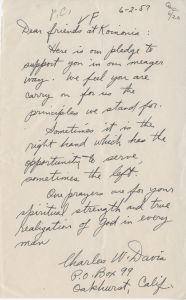 P.C. VF 6-2-57
Dear friends at Koinonia:
Here is our pledge to
support you in our meager
way. We feel you are
carry on for us the
principles we stand for.
Sometimes it is the
right hand which has the
opportunity to serve,
sometimes the left.
Our prayers are for your
spiritual strength and true
realization of God in every
man
Charles W. Davis
P.O. Box 99
Oakhurst, Calif.